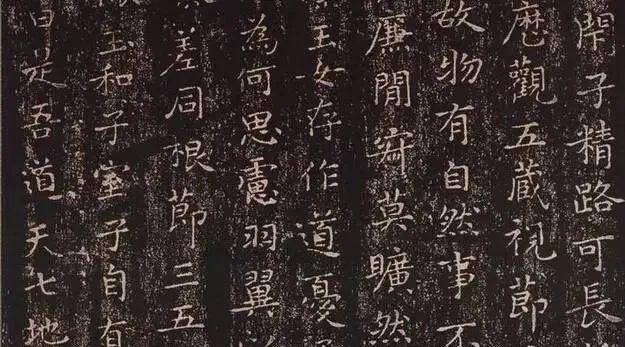 閇子精路可長
歷觀五藏視節
故物有自然事不
廉閒寂莫曠然
玉女存作道憂
為何思慮羽翼
差同根節三五
玉和子室子自有
曰是吾道天七地